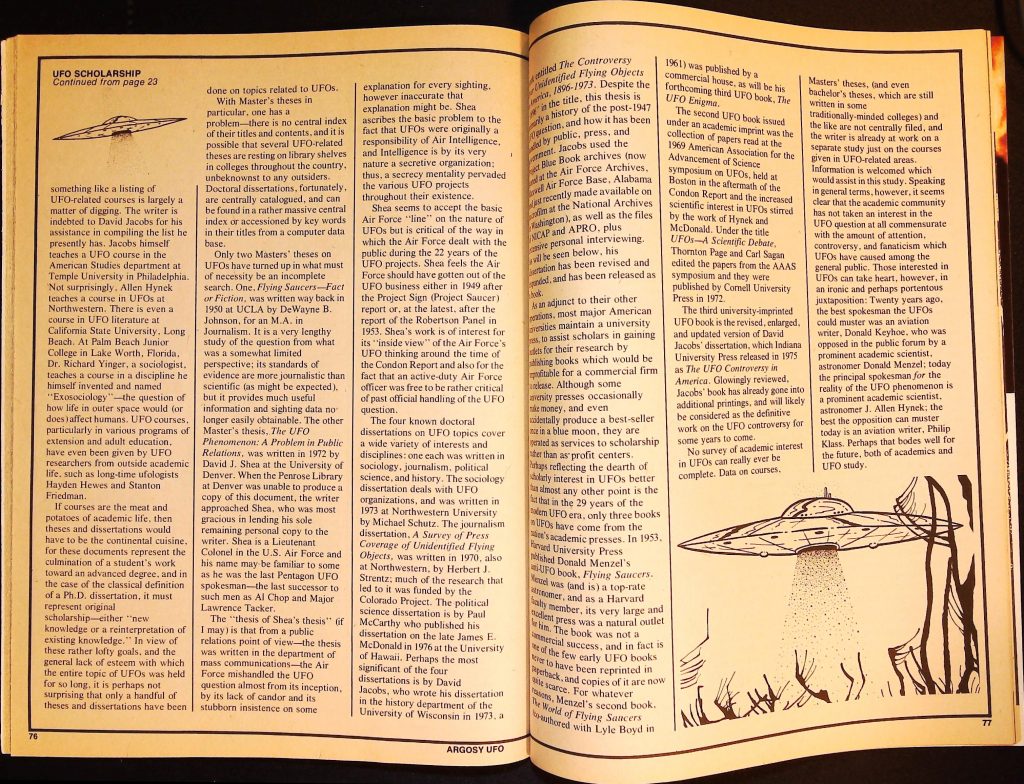 UFO SCHOLARSHIP
Continued from page 23
something like a listing of
UFO-related courses is largely a
matter of digging. The writer is
indebted to David Jacobs for his
assistance in compiling the list he
presently has. Jacobs himself
teaches a UFO course in the
American Studies department at
Temple University in Philadelphia.
Not surprisingly, Allen Hynek
teaches a course in UFOs at
Northwestern. There is even a
course in UFO literature at
California State University, Long
Beach. At Palm Beach Junior
College in Lake Worth, Florida,
Dr. Richard Yinger, a sociologist,
teaches a course in a discipline he
himself invented and named
"Exosociology"—the question of
how life in outer space would (or
does) affect humans. UFO courses,
particularly in various programs of
extension and adult education,
have even been given by UFO
researchers from outside academic
life, such as long-time ufologists
Hayden Hewes and Stanton
Friedman.
If courses are the meat and
potatoes of academic life, then
theses and dissertations would
have to be the continental cuisine,
for these documents represent the
culmination of a student's work
toward an advanced degree, and in
the case of the classical definition
of a Ph.D. dissertation, it must
represent original
scholarship—either "new
knowledge or a reinterpretation of
existing knowledge." In view of
these rather lofty goals, and the
general lack of esteem with which
the entire topic of UFOs was held
for so long, it is perhaps not
surprising that only a handful of
theses and dissertations have been
done on topics related to UFOs.
With Master's theses in
particular, one has a
problem—there is no central index
of their titles and contents, and it is
possible that several UFO-related
theses are resting on library shelves
in colleges throughout the country,
unbeknownst to any outsiders.
Doctoral dissertations, fortunately,
are centrally catalogued, and can
be found in a rather massive central
index or accessioned by key words
in their titles from a computer data
base.
Only two Masters' theses on
UFOs have turned up in what must
of necessity be an incomplete
search. One, Flying Saucers—Fact
or Fiction, was written way back in
1950 at UCLA by DeWayne B.
Johnson, for an M.A. in
Journalism. It is a very lengthy
study of the question from what
was a somewhat limited
perspective; its standards of
evidence are more journalistic than
scientific (as might be expected),
but it provides much useful
information and sighting data no
longer easily obtainable. The other
Master's thesis, The UFO
Phenomenon: A Problem in Public
Relations, was written in 1972 by
David J. Shea at the University of
Denver. When the Penrose Library
at Denver was unable to produce a
copy of this document, the writer
approached Shea, who was most
gracious in lending his sole
remaining personal copy to the
writer. Shea is a Lieutenant
Colonel in the U.S. Air Force and
his name may be familiar to some
as he was the last Pentagon UFO
spokesman—the last successor to
such men as Al Chop and Major
Lawrence Tacker.
The "thesis of Shea's thesis" (if
I may) is that from a public
relations point of view—the thesis
was written in the department of
mass communications—the Air
Force mishandled the UFO
question almost from its inception,
by its lack of candor and its
stubborn insistence on some
explanation for every sighting,
however inaccurate that
explanation might be. Shea
ascribes the basic problem to the
fact that UFOs were originally a
responsibility of Air Intelligence,
and Intelligence is by its very
nature a secretive organization;
thus, a secrecy mentality pervaded
the various UFO projects
throughout their existence.
Shea seems to accept the basic
Air Force "line" on the nature of
UFOs but is critical of the way in
which the Air Force dealt with the
public during the 22 years of the
UFO projects. Shea feels the Air
Force should have gotten out of the
UFO business either in 1949 after
the Project Sign (Project Saucer)
report or, at the latest, after the
report of the Robertson Panel in
1953. Shea's work is of interest for
its "inside view" of the Air Force's
UFO thinking around the time of
the Condon Report and also for the
fact that an active-duty Air Force
officer was free to be rather critical
of past official handling of the UFO
question.
The four known doctoral
dissertations on UFO topics cover
a wide variety of interests and
disciplines: one each was written in
sociology, journalism, political
science, and history. The sociology
dissertation deals with UFO
organizations, and was written in
1973 at Northwestern University
by Michael Schutz. The journalism
dissertation, A Survey of Press
Coverage of Unidentified Flying
Objects, was written in 1970, also
at Northwestern, by Herbert J.
Strentz; much of the research that
led to it was funded by the
Colorado Project. The political
science dissertation is by Paul
McCarthy who published his
dissertation on the late James E.
McDonald in 1976 at the University
of Hawaii. Perhaps the most
significant of the four
dissertations is by David
Jacobs, who wrote his dissertation
in the history department of the
University of Wisconsin in 1973, a
76
ARGOSY UFO
entitled The Controversy
Unidentified Flying Objects
America, 1896-1973. Despite the
in the title, this thesis is
a history of the post-1947
question, and how it has been
by public, press, and
Jacobs used the
Blue Book archives (now
at the Air Force Archives,
Air Force Base, Alabama
just recently made available on
at the National Archives
Washington), as well as the files
NICAP and APRO, plus
personal interviewing.
will be seen below, his
dissertation has been revised and
and has been released as
book.
As an adjunct to their other
operations, most major American
universities maintain a university
press, to assist scholars in gaining
outlets for their research by
publishing books which would be
unprofitable for a commercial firm
release. Although some
university presses occasionally
make money, and even
accidentally produce a best-seller
once in a blue moon, they are
operated as services to scholarship
rather than as profit centers.
Perhaps reflecting the dearth of
scholarly interest in UFOs better
than almost any other point is the
fact that in the 29 years of the
modern UFO era, only three books
on UFOs have come from the
nation's academic presses. In 1953,
Harvard University Press
published Donald Menzel's
anti-UFO book, Flying Saucers.
Menzel was (and is) a top-rate
astronomer, and as a Harvard
faculty member, its very large and
excellent press was a natural outlet
for him. The book was not a
commercial success, and in fact is
one of the few early UFO books
never to have been reprinted in
paperback, and copies of it are now
quite scarce. For whatever
reasons, Menzel's second book,
The World of Flying Saucers
(co-authored with Lyle Boyd in
1961) was published by a
commercial house, as will be his
forthcoming third UFO book, The
UFO Enigma.
The second UFO book issued
under an academic imprint was the
collection of papers read at the
1969 American Association for the
Advancement of Science
symposium on UFOs, held at
Boston in the aftermath of the
Condon Report and the increased
scientific interest in UFOs stirred
by the work of Hynek and
McDonald. Under the title
UFOs—A Scientific Debate,
Thornton Page and Carl Sagan
edited the papers from the AAAS
symposium and they were
published by Cornell University
Press in 1972.
The third university-imprinted
UFO book is the revised, enlarged,
and updated version of David
Jacobs' dissertation, which Indiana
University Press released in 1975
as The UFO Controversy in
America. Glowingly reviewed,
Jacobs' book has already gone into
additional printings, and will likely
be considered as the definitive
work on the UFO controversy for
some years to come.
No survey of academic interest
in UFOs can really ever be
complete. Data on courses,
Masters' theses, (and even
bachelor's theses, which are still
written in some
traditionally-minded colleges) and
the like are not centrally filed, and
the writer is already at work on a
separate study just on the courses
given in UFO-related areas.
Information is welcomed which
would assist in this study. Speaking
in general terms, however, it seems
clear that the academic community
has not taken an interest in the
UFO question at all commensurate
with the amount of attention,
controversy, and fanaticism which
UFOs have caused among the
general public. Those interested in
UFOs can take heart, however, in
an ironic and perhaps portentous
juxtaposition: Twenty years ago,
the best spokesman the UFOs
could muster was an aviation
writer, Donald Keyhoe, who was
opposed in the public forum by a
prominent academic scientist,
astronomer Donald Menzel; today
the principal spokesman for the
reality of the UFO phenomenon is
a prominent academic scientist,
astronomer J. Allen Hynek; the
best the opposition can muster
today is an aviation writer, Philip
Klass. Perhaps that bodes well for
the future, both of academics and
UFO study.
77